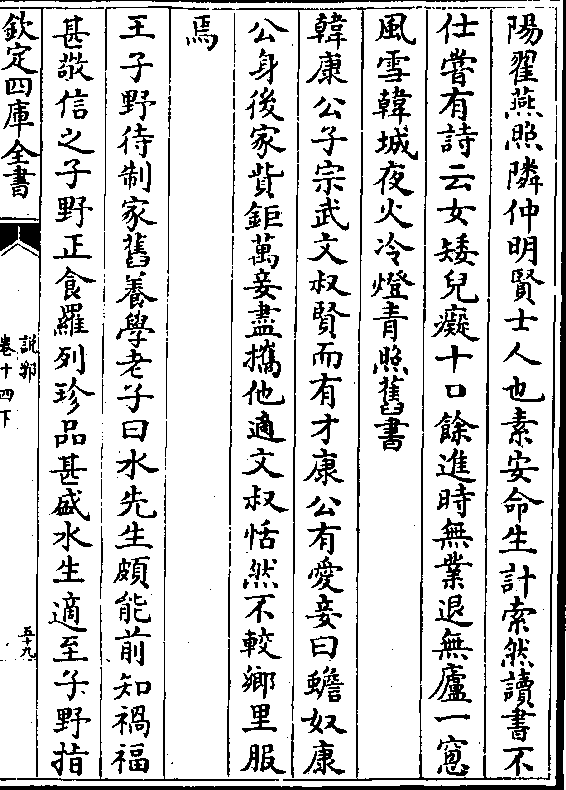 陽翟燕照隣仲明賢士人也素安命生計索然讀書不
仕嘗有詩云女矮兒癡十口餘進時無業退無廬一窻
風雪韓城夜火冷燈青照舊書
韓康公子宗武文叔賢而有才康公有愛妾曰蟾奴康
公身後家貲鉅萬妾盡攜他適文叔恬然不較鄉里服
焉
王子野待制家舊養學老子曰水先生頗能前知禍福
甚敬信之子野正食羅列珍品甚盛水生適至子野指
欽定四庫全書
說郛
卷十四下
五十九